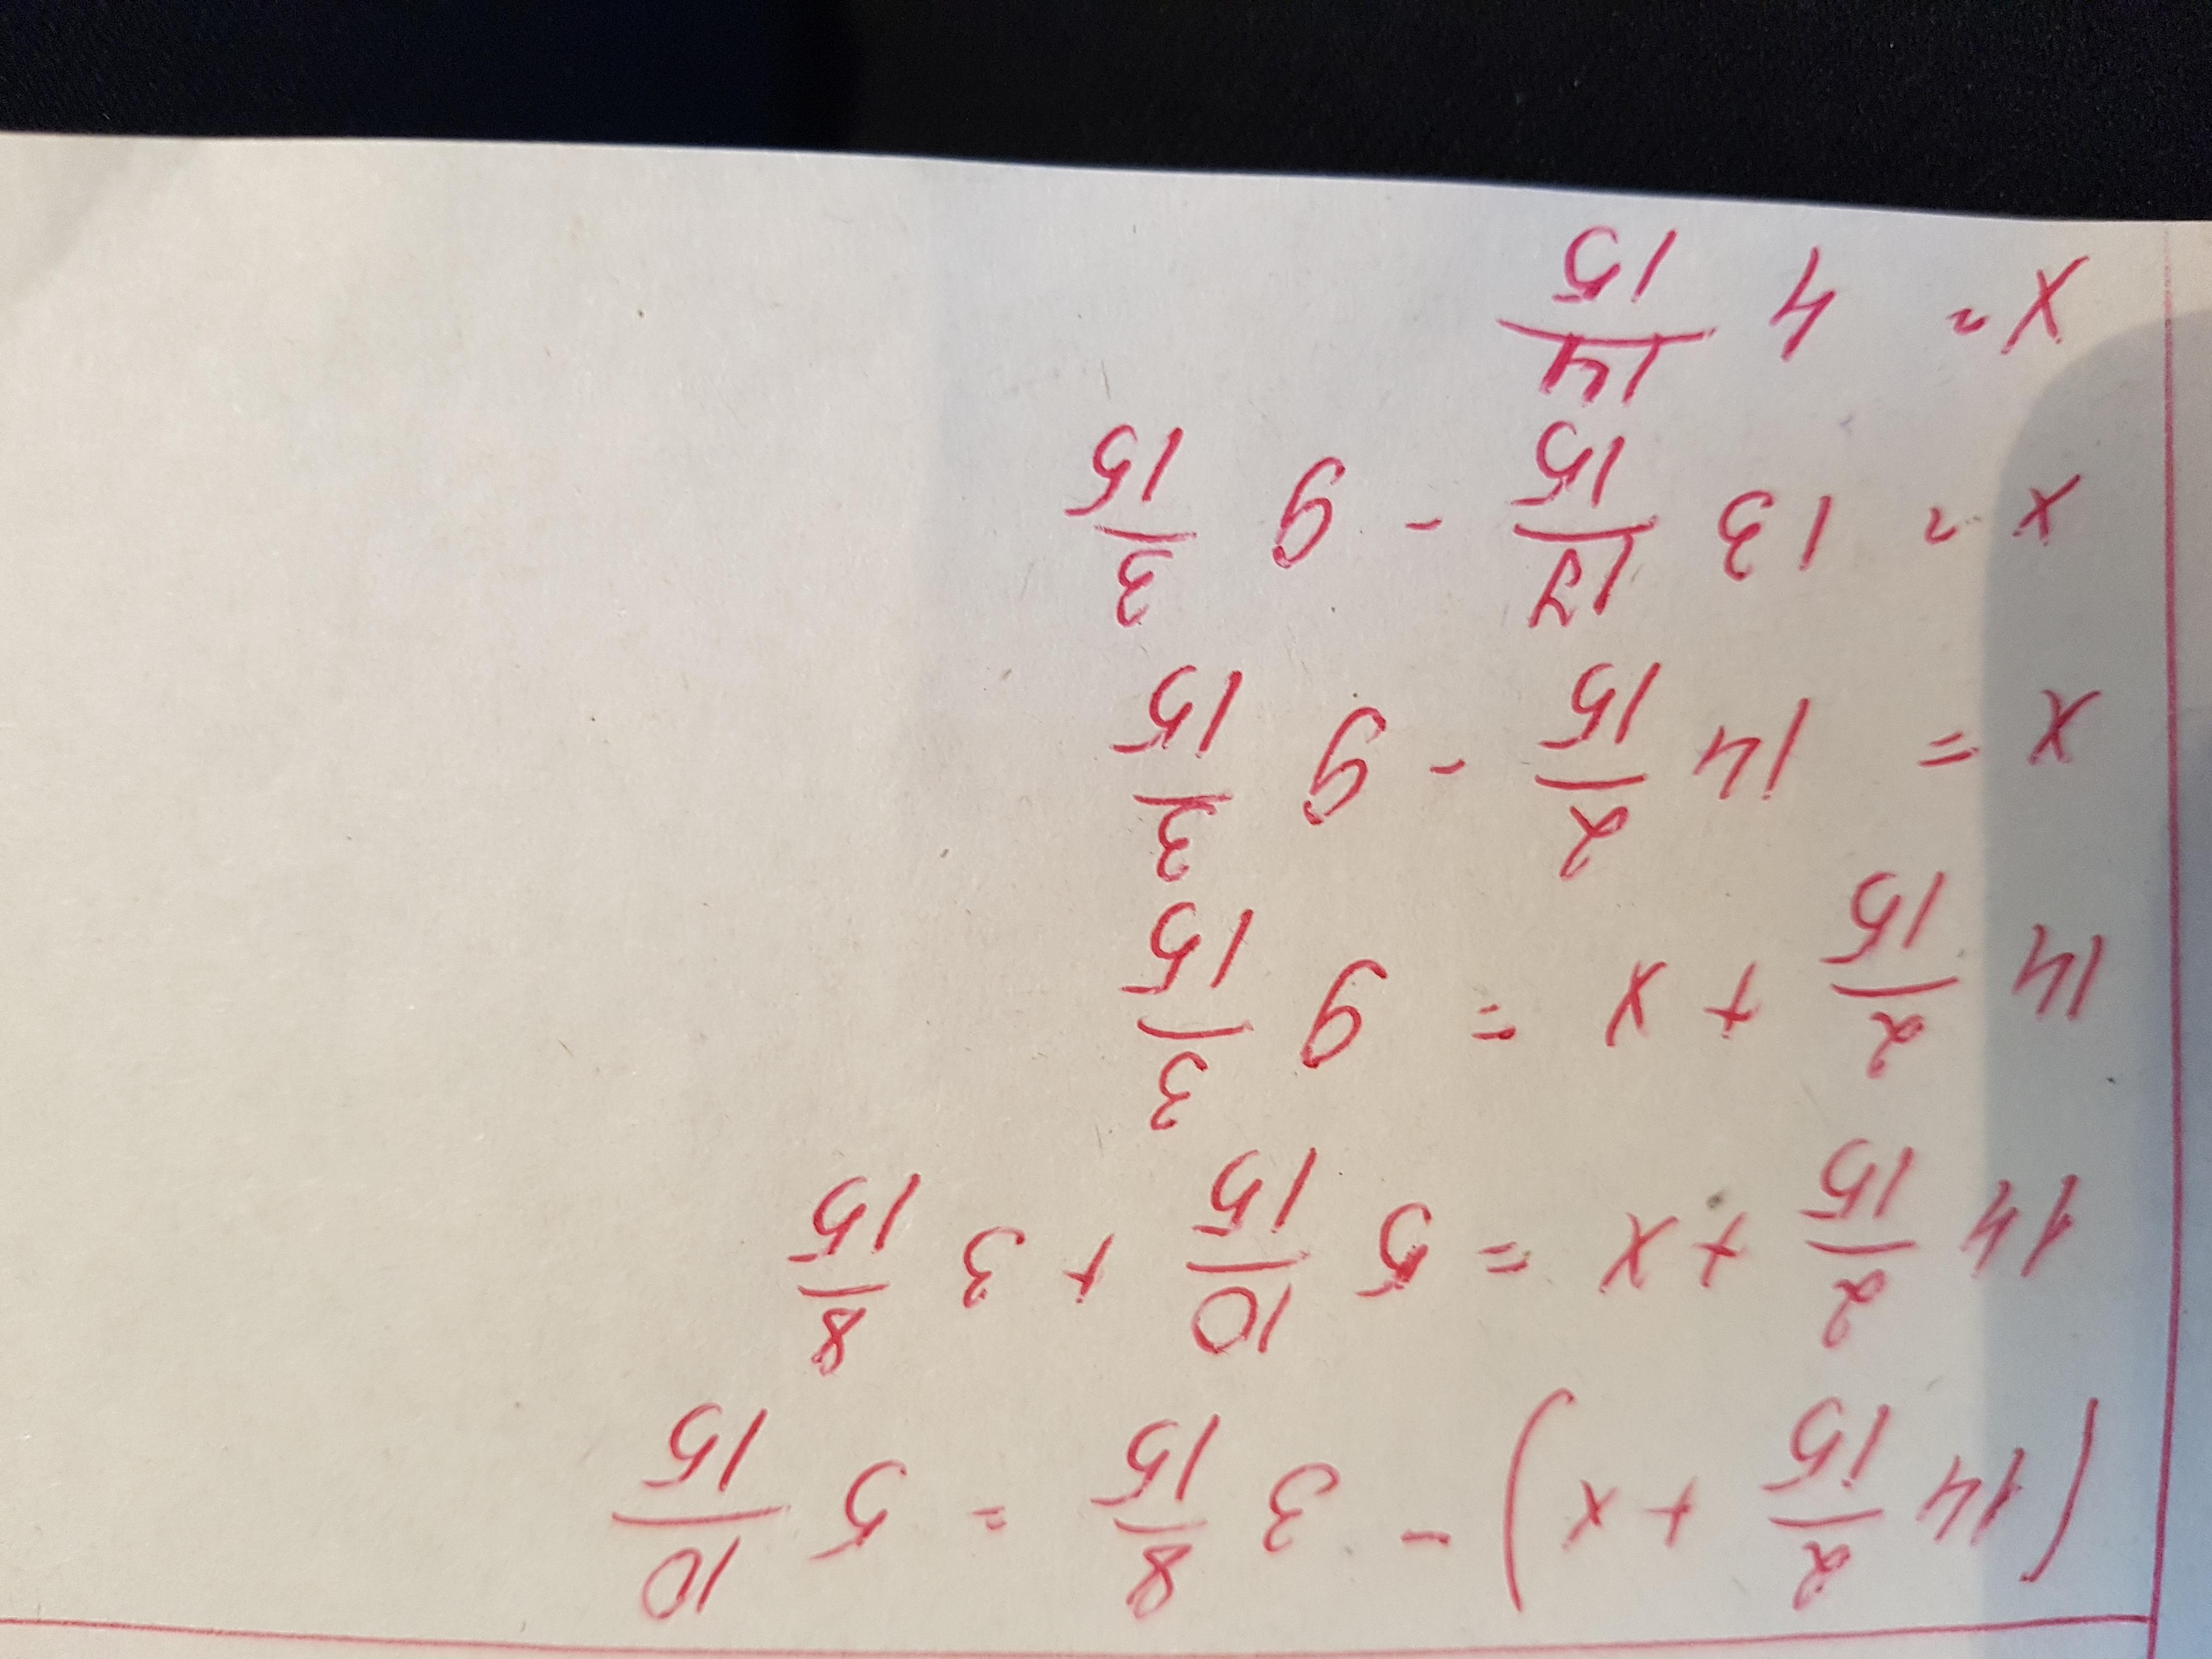 (14 2/15 + x) - 3 8/15 = 5 10/15
14 2/15 + x = 5 10/15 + 3 8/15
14 2/15 + x = 9 3/15
x = 14 2/15 - 9 3/15
x = 13 17/15 - 9 3/15
x = 4 14/15